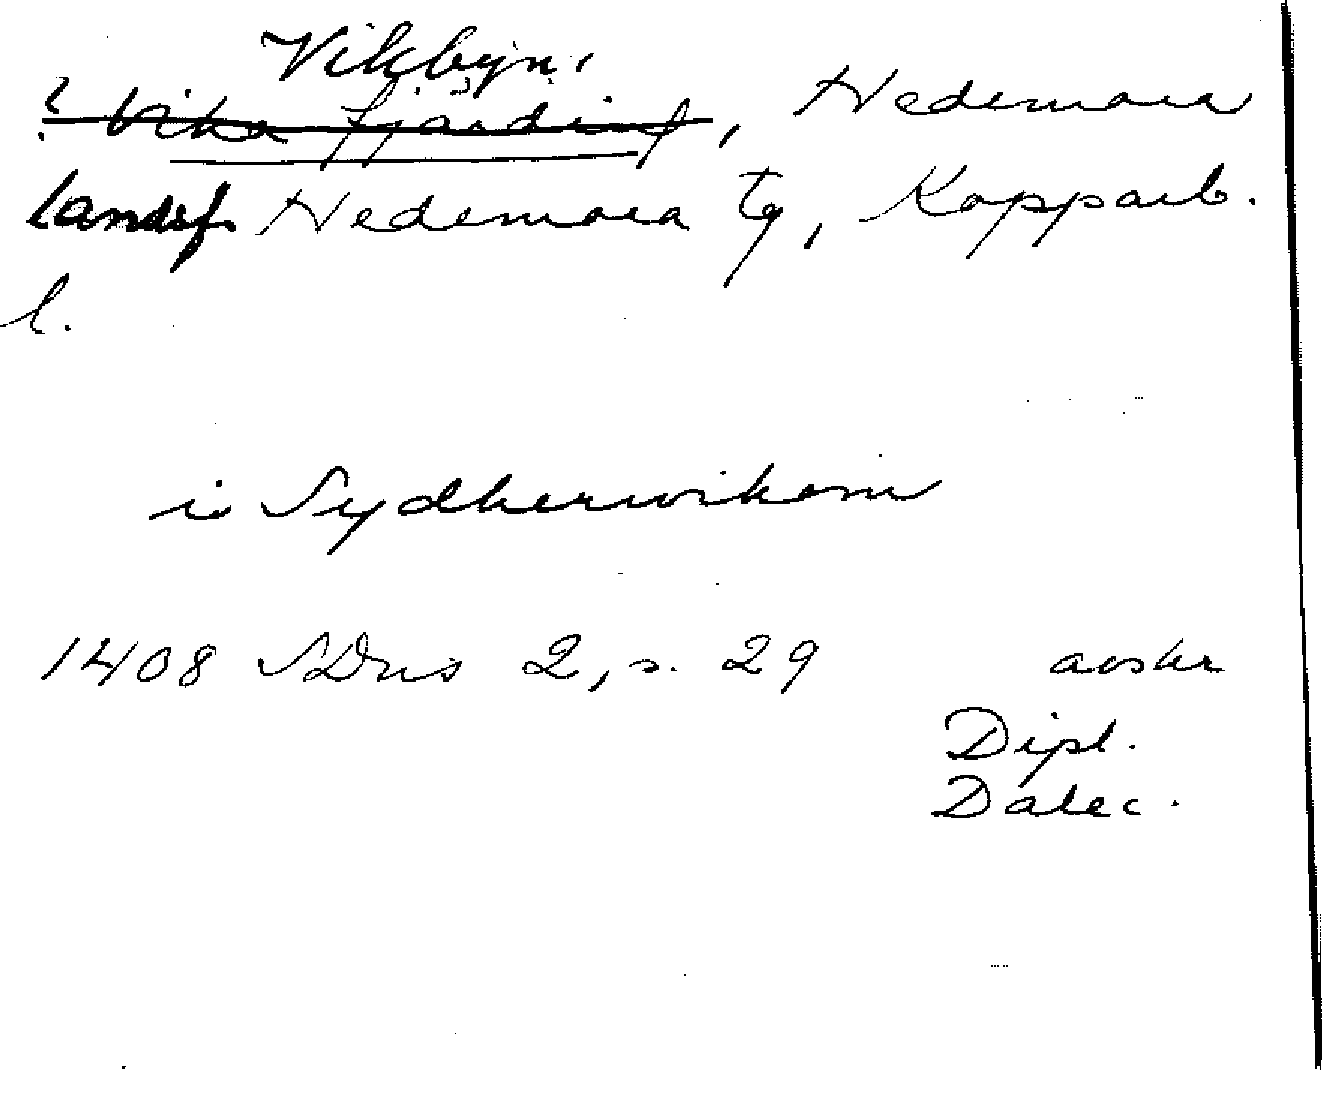 Vikbyn,
? Vika fjärding, Hedemora
landsf. Hedemora tg, Kopparb.
l.
i Sydherwikom
1408 SDns 2, s. 29 avskr
Dipl.
Dalec.